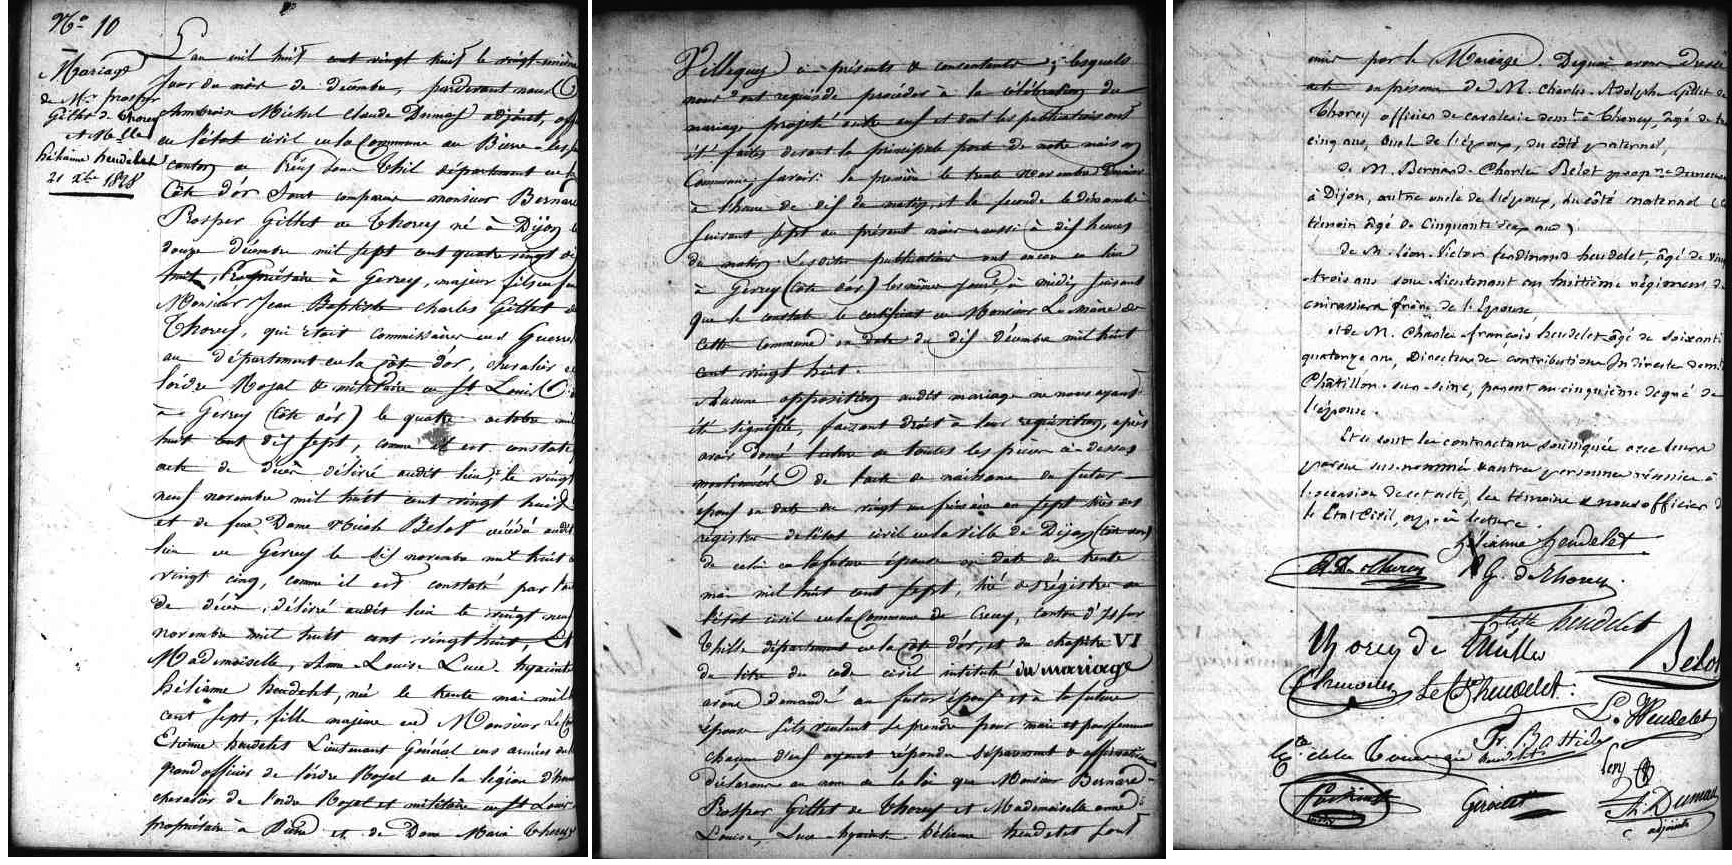 No 10
Mariage
de Mr prosper
Gillet de thorey
et Melle
hélianne heudelet
21 xbre 1828
L'an mil huit cent vingt huit le vingt unième
Jour du mois de décembre, pardevant nous
Ambroise Michel Claude Dumay adjoint, off
de l'état civil de la Commune de Bierre-les-
canton de Précy sous Thil département de la
Côte d'or Sont comparus monsieur Bernard
Prosper Gillet de Thorey né à Dijon le
douze décembre mil sept cent quatre vingt dix
huit, Propriétaire à Gevrey, majeur fils de feu
Monsieur Jean Baptiste Charles Gillet de
Thorey, qui était commissaire des Guerres
au département de la Côte d'or, chevalier de
l'ordre Royal & militaire de St Louis
à Gevrey (Côte d'or) le quatre octobre mil
huit cent dix sept, comme il est constaté
acte de décès délivré audit lieu, le vingt
neuf novembre mil huit cent vingt huit
et de feue Dame Nicole Belot décédée audit
lieu de Gevrey le six novembre mil huit c
vingt cinq, comme il est constaté par l'ac
de décès, délivré audit lieu le vingt neuf
novembre mil huit cent vingt huit, Et
Mademoiselle, Anne Louise Luce hyacinte
hélianne heudelet, née le trente mai mil h
cent sept, fille majeure de Monsieur Le Cte
Etienne heudelet Lieutenant Général des armées du
grand officier de l'ordre Royal de la légion d'hon
chevalier de l'ordre Royal et militaire de St Louis
propriétaire à Bierre et de Dame Marie Thorey
Villequey à présents & consentants; lesquels
nous ont requis de procéder à la célébration du
mariage projeté entre eux et dont les publications ont
été faites devant la principale porte de notre maison
Commune, savoir: la première le trente Novembre dernier
à l'heure de dix du matin, et la seconde le dimanche
suivant sept du présent mois aussi à dix heures
du matin. Les dites publications ont encore eu lieu
à Gevrey (Côte d'or) les mêmes jours à midi, suivant
que le constate le certificat de Monsieur Le Maire de
cette commune en date du dix décembre mil huit
cent vingt huit.
Aucune opposition audit mariage ne nous ayant
été signifiée, faisant droit à leur requisition, après
avoir donné lecture de toutes les pièces ci-dessus
mentionnées de l'acte de naissance du futur
époux en date du vingt un frimaire an sept tiré des
registres de l'état civil de la Ville de Dijon (Côte d'or)
de celui de la future épouse en date du trente
mai mil huit cent sept, tiré des régistres de
l'état civil de la Commune de Crecey, Canton d'Is sur
Thille département de la côte d'or, et du chapitre VI
du titre du code civil intitulé du mariage
avons demandé au futur époux et à la future
épouse s'ils veulent se prendre pour mari et pour femme
chacun d'eux ayant répondu séparément & affirmativement
déclarons au nom de la loi que Monsieur Bernard
Prosper Gillet de Thorey et Mademoiselle anne
Louise, Luce hyacinte héliane heudelet sont
unis par le Mariage. Dequoi avons dressé
acte en présence de M. Charles Adolphe Gillet de
thorey officier de cavalerie demt à thorey, âgé de tre
cinq ans, oncle de l'époux, du côté paternel,
de M. Bernard Charles Belot propre demeurant
à Dijon, autre oncle de l'époux, du côté maternel
témoin âgé de Cinquante deux ans)
de M. léon Victor ferdinand heudelet âgé de vingt
trois ans sous-lieutenant au huitième régiment de
cuirassiers frère de l'Epouse
et de M. Charles françois heudelet âgé de soixante
quatorze ans, Directeur des contributions Indirectes demt à
Châtillon-sur-Seine, parent au cinquième degré de
l'épouse.
Et se sont les contractans soussignés avec leurs
parens sus-nommés & autres personnes réunies à
l'occasion de cet acte, les témoins & nous officier de
l'Etat Civil, après lecture.
hélianne heudelet
A. De thorey
P. G. de thorey
heudelet
Thorey de
Belot
Le Cte heudelet.
L. Heudelet
heudelet
Girodet
A. Dumay
adjoint